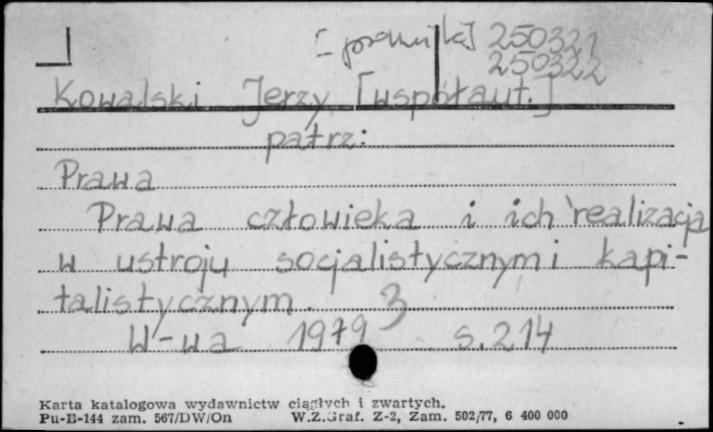 [prawnik] 250321
250322
Kowalski Jerzy [współaut.]
patrz:
Prawa
Prawa człowieka i ich realizacja
w ustroju socjalistycznym i kapi-
talistycznym. 3
W-wa 1979 s. 214
Karta katalogowa wydawnictw ciągłych i zwartych.
Pu-B-144 zam. 567/DW/On W.Z.Graf. Z-2, Zam. 502/77, 6 400 000